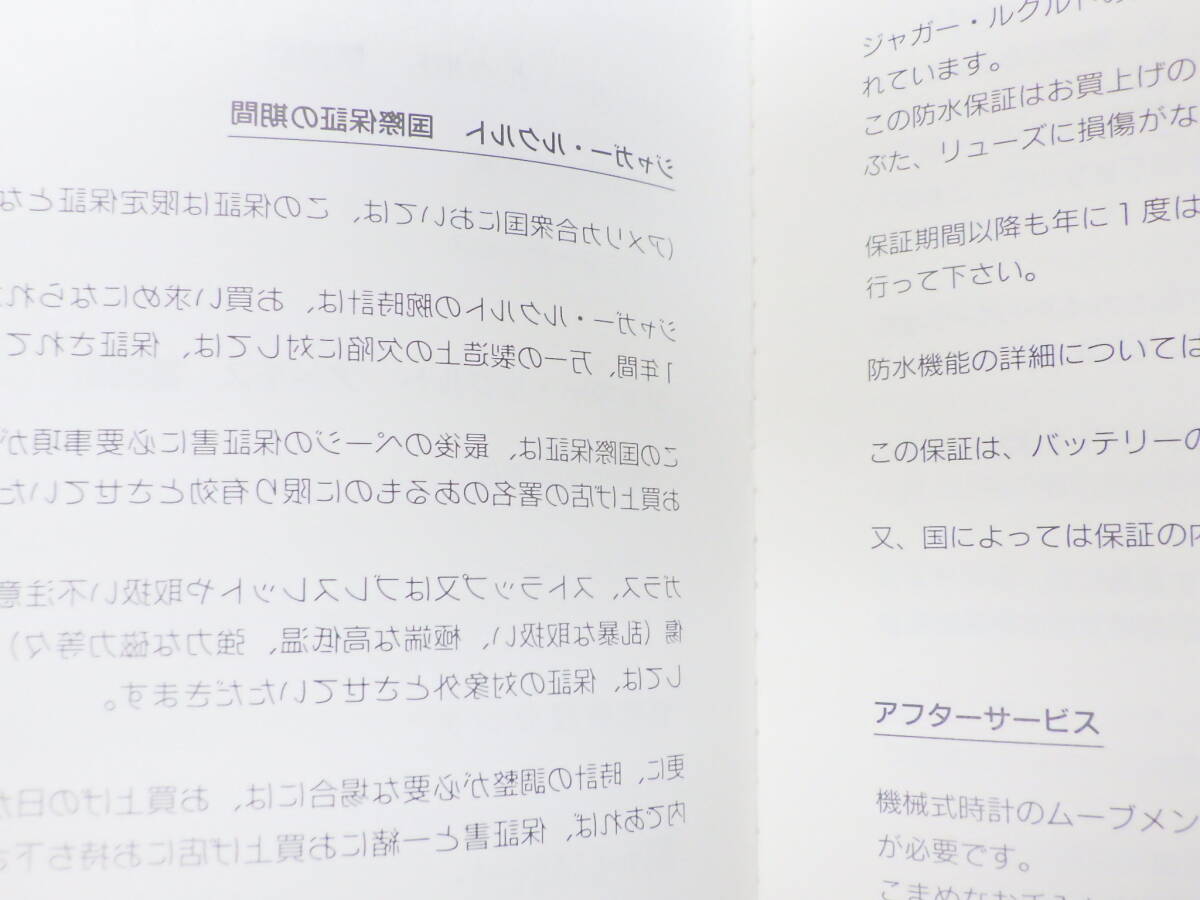 ジャガー・ルクルト　国際保証の期間
(アメリカ合衆国においては、この保証は限定保証とな
ジャガー・ルクルトの腕時計は、お買い求めになられ
1年間、万一の製造上の欠陥に対しては、保証されて
この国際保証は、最後のページの保証書に必要事項が
お買上げ店の署名のあるものに限り有効とさせていた
ガラス、ストラップ又はブレスレットや取扱い不注意
傷（乱暴な取扱い、極端な高低温、強力な磁力等々）
しては、保証の対象外とさせていただきます。
更に、時計の調整が必要な場合には、お買上げの日か
内であれば、保証書と一緒にお買上げ店にお持ち下さ
ジャガー・ルクルトの
れています。
この防水保証はお買上げの
ぶた、リューズに損傷がな
保証期間以降も年に1度は
行って下さい。
防水機能の詳細については
この保証は、バッテリーの
又、国によっては保証の内
アフターサービス
機械式時計のムーブメン
が必要です。
こまめなお手入